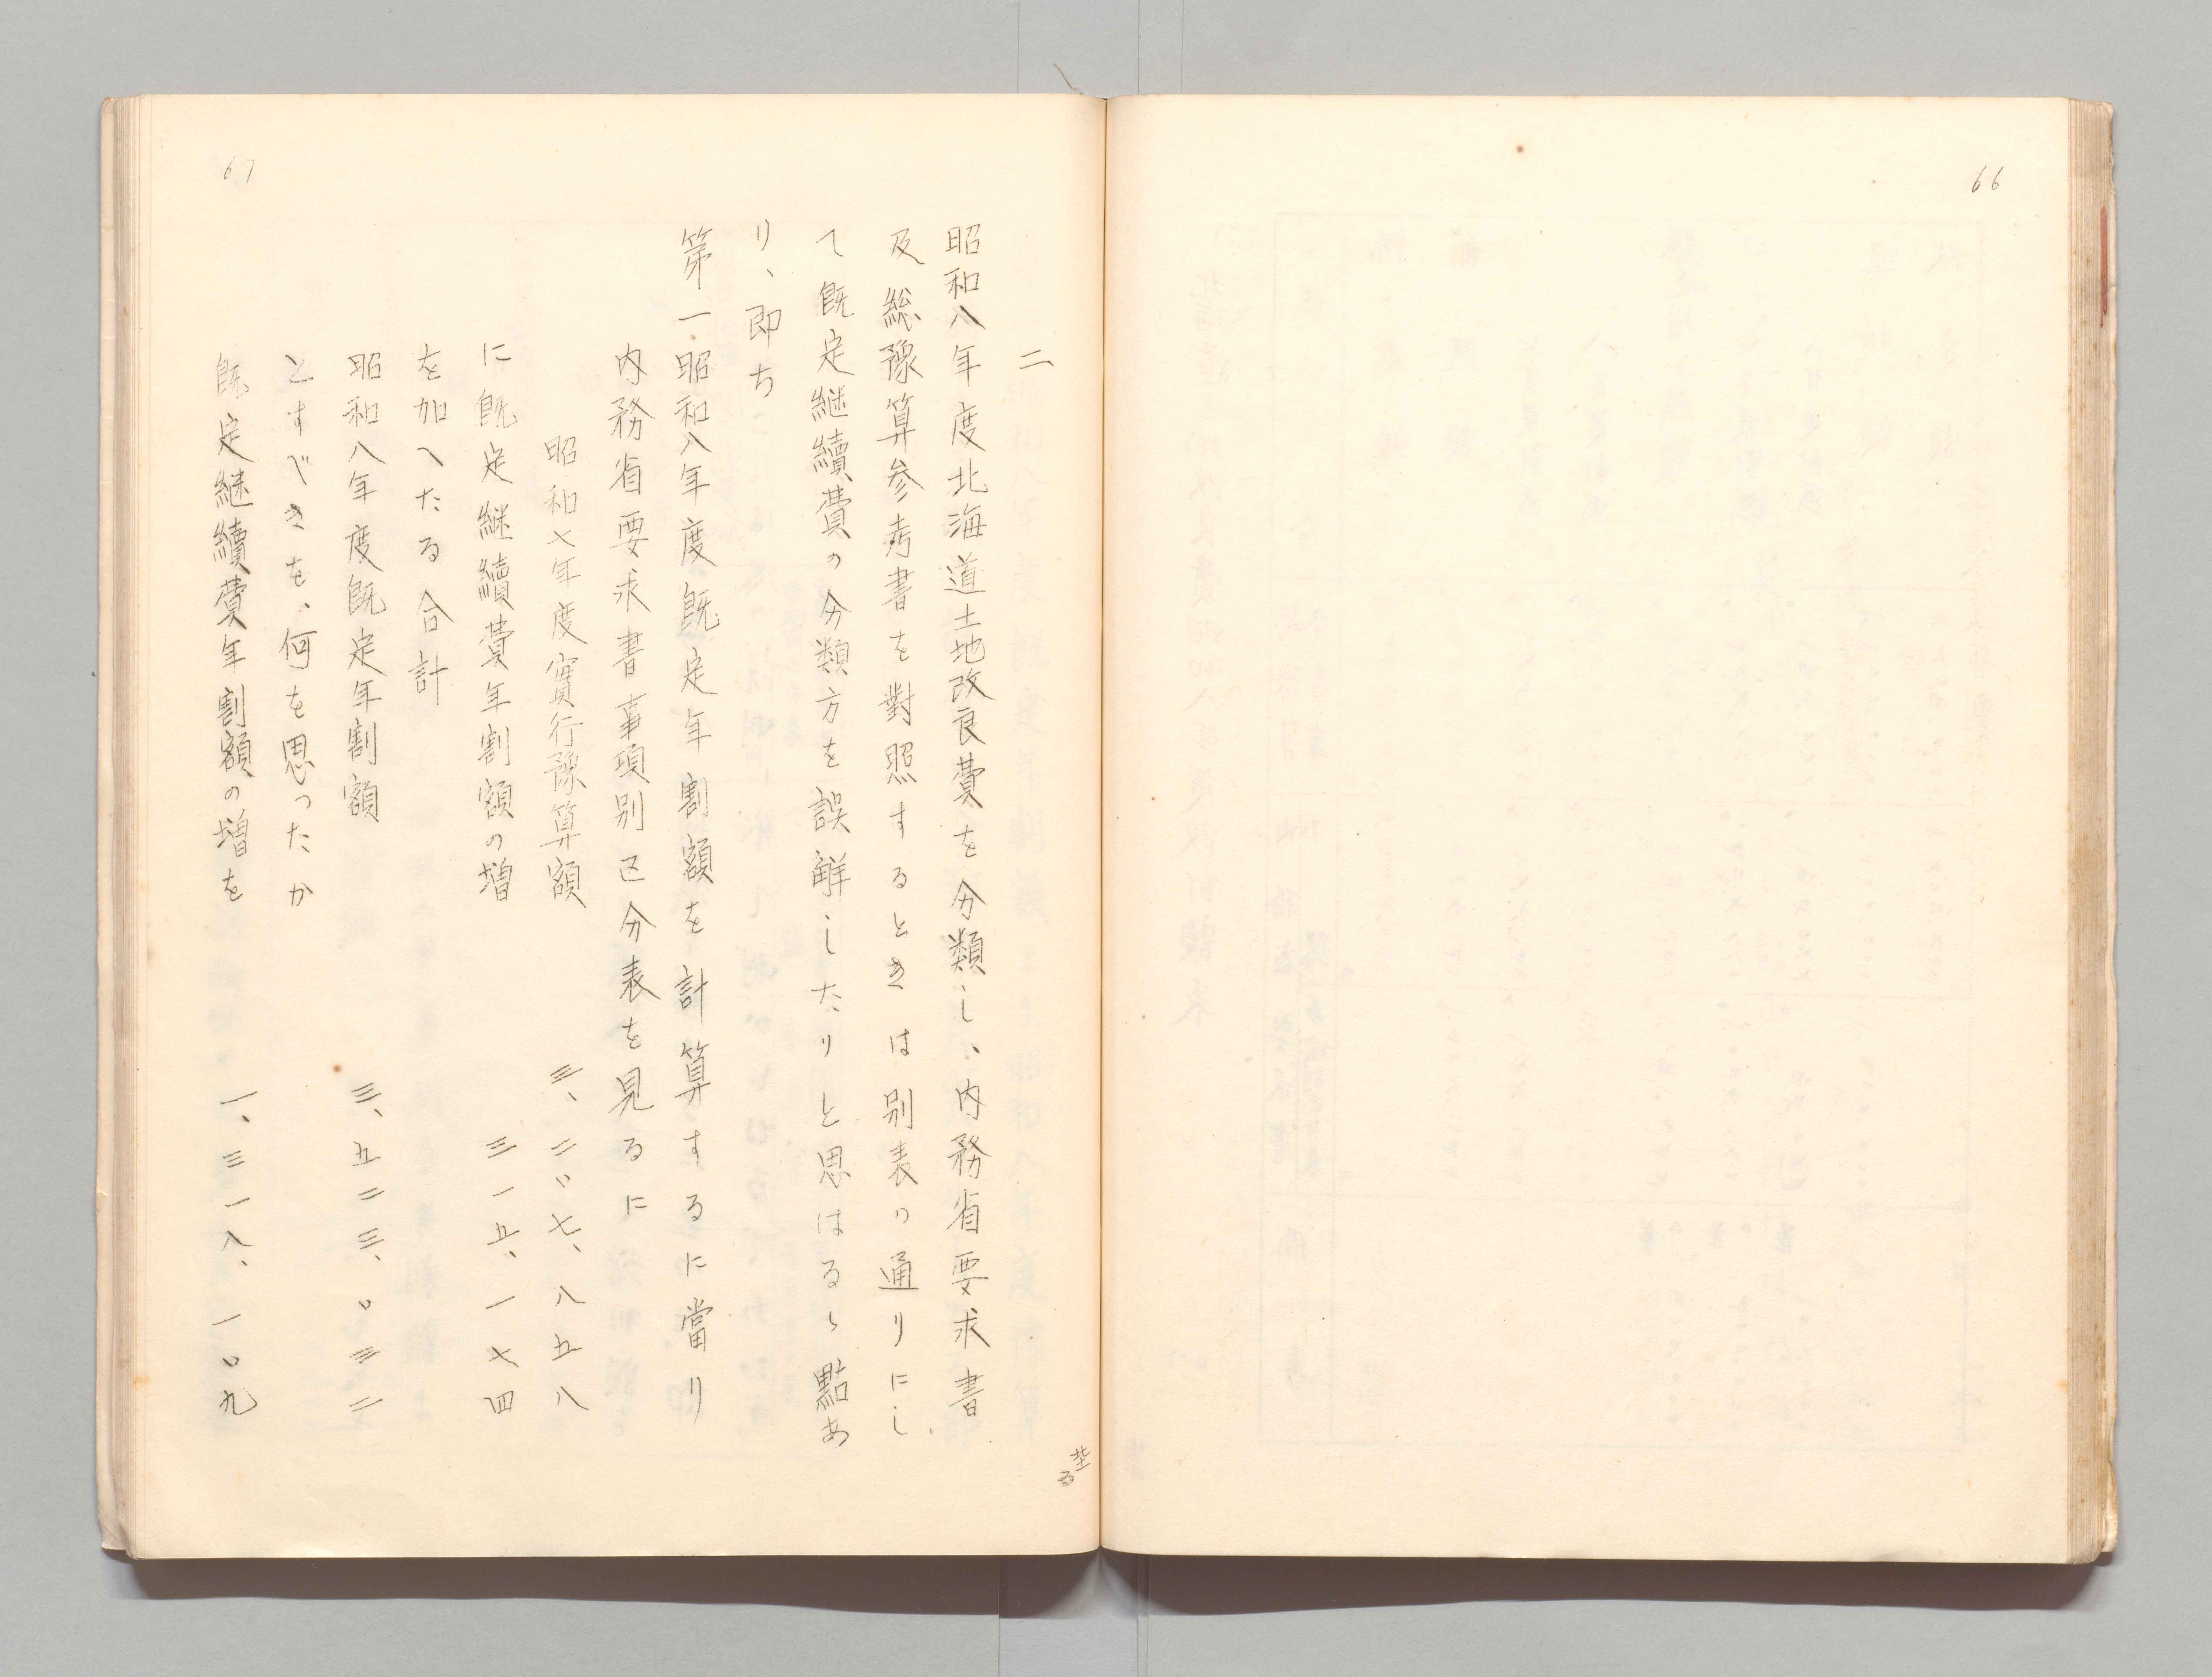 66
67
二
昭和八年度北海道土地改良費を分類し、内務省要求書
及総豫算参考書を對照するときは別表の通りにし
て既定継續費の分類方を誤解したりと思はるゝ點あ
り、即ち
第一、昭和八年度既定年割額を計算するに當り
内務省要求書事項別区分表を見るに
昭和七年度實行豫算額 三、二〇七、八五八
に既定継續費年割額の増 三一五、一七四
を加へたる合計
昭和八年度既定年割額 三、五二三、〇三二
とすべきを、何を思ったか
既定継續費年割額の増を 一、三一八、一〇九